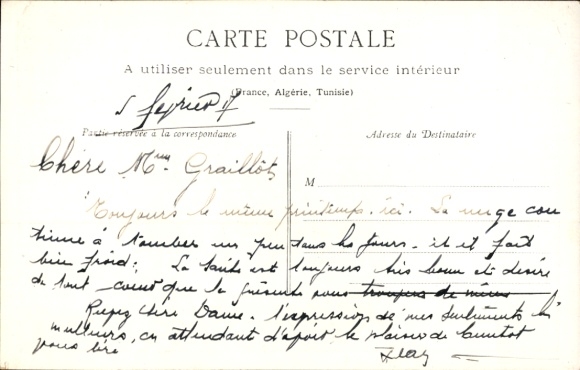 CARTE POSTALE
A utiliser seulement dans le service intérieur
(France, Algérie, Tunisie)
5 février
Partie réservée à la correspondance
Adresse du Destinataire
Chère Mme Graillot
M
Toujours le même printemps ici. La neige con
tinue à tomber un peu tous les jours. il et fait
bien froid; La santé est toujours très bonne et désire
de tout coeur que la présente vous trouvera de même
Recevez chère Dame. l'expression de mes sentiments les
meilleurs, en attendant d'avoir le plaisir de bientot
vous lire